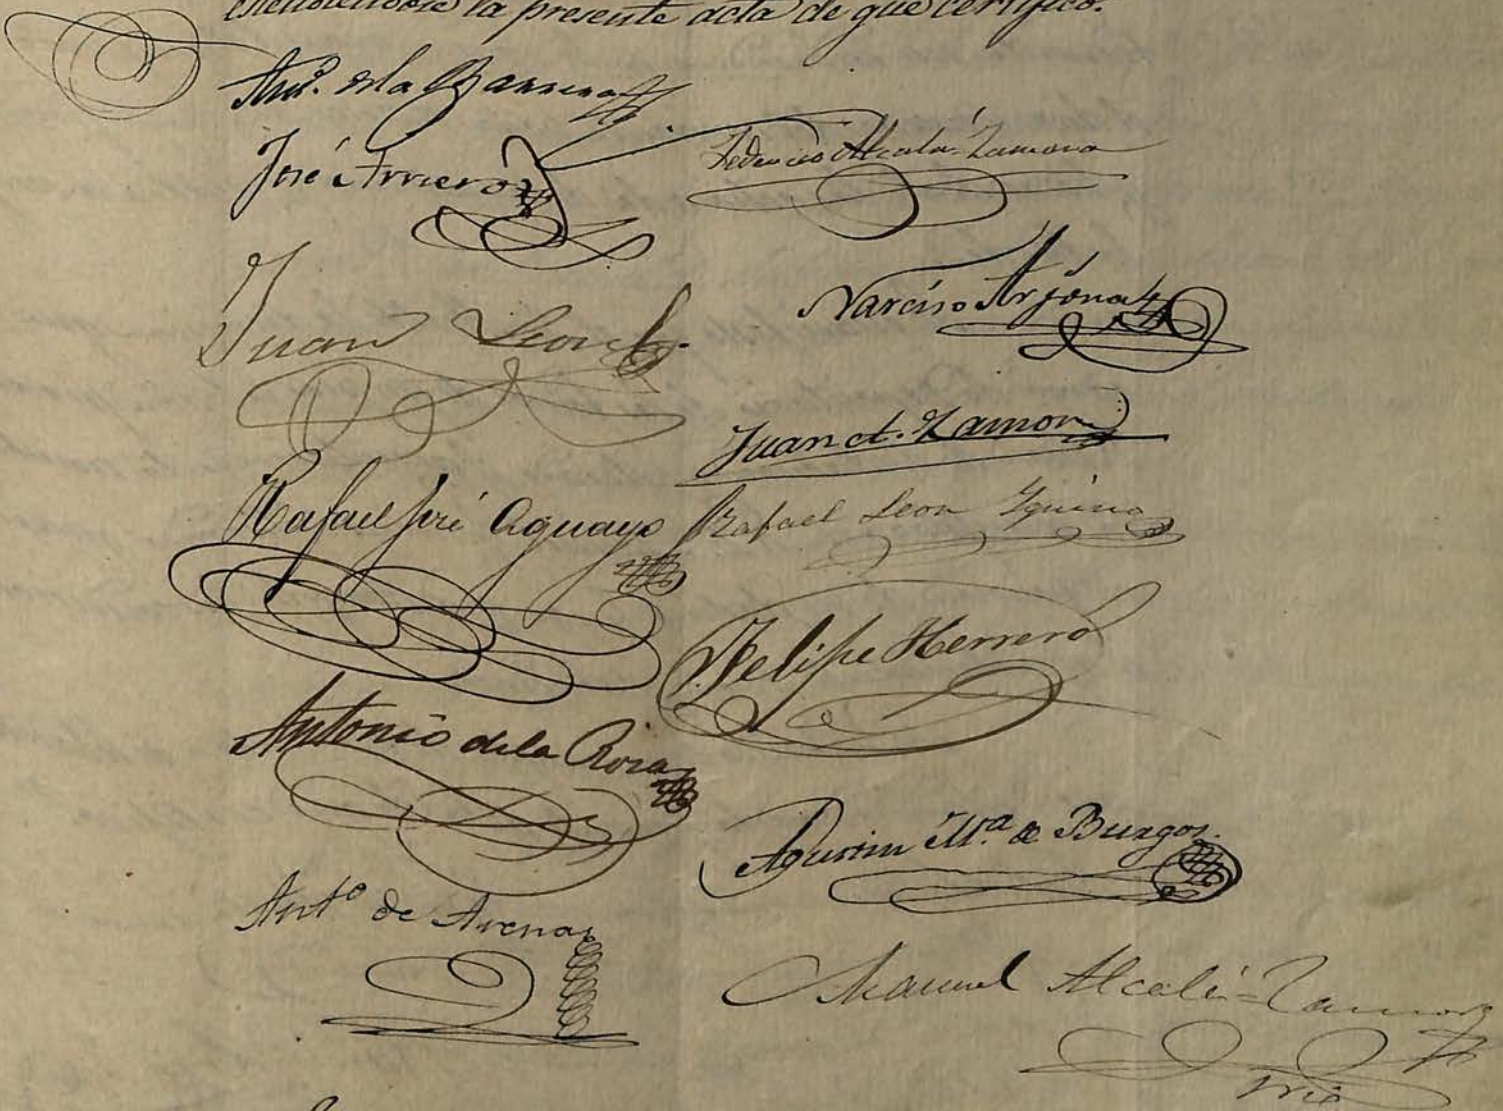 la presente acta de que certifico.
Anto. de la Barrera
José Arriero
Federico Alcalá-Zamora
Juan Leon
Narciso Arjona
Juan A. Zamora
Rafael José Aguayo
Rafael Leon
Felipe Herrero
Antonio dela Rosa
Agustin Mª de Burgos.
Antº de Arenas
Manuel Alcalá-Zamora